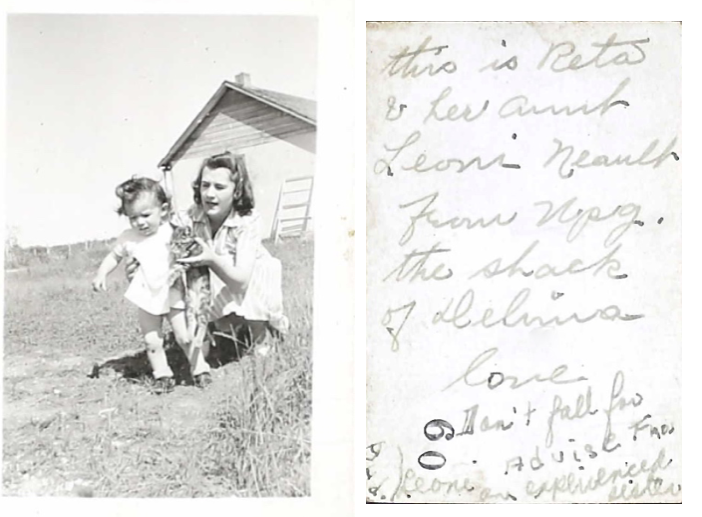 this is Reta
& her aunt
Leoni Neault
from Wpg.
the shack
of Delima
love
Don't fall for
Advise From
an experienced
sister
Leonie
60